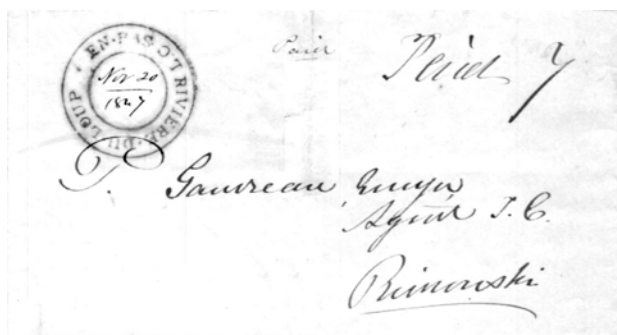 RIVIERE-DU-LOUP EN-BAS
Nov 20
1847
Paid
Paid 7
P. Gauvreau
Agent T. C.
Rimouski